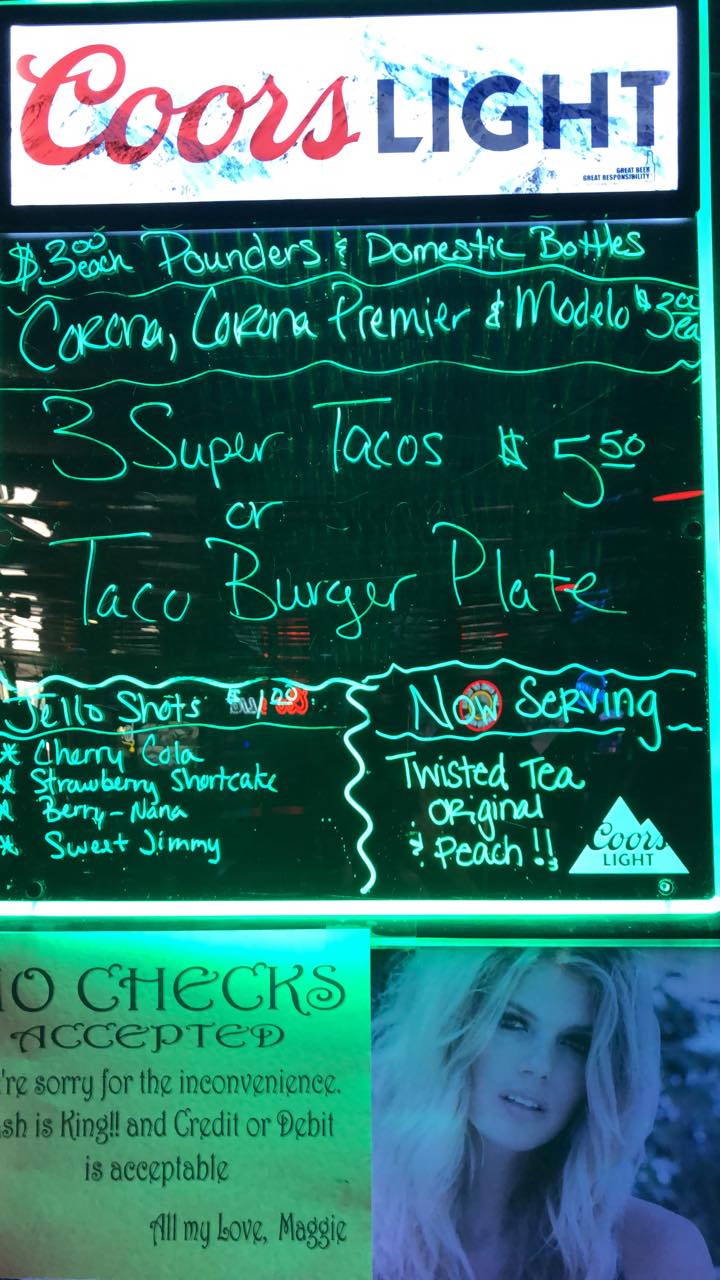 Coors LIGHT
GREAT BEER
GREAT RESPONSIBILITY
$3.00 each Pounders & Domestic Bottles
Corona, Corona Premier & Modelo $3 ea
3 Super Tacos $5.50
or
Taco Burger Plate
Jello Shots $1.00
* Cherry Cola
* Strawberry Shortcake
* Berry-Nana
* Sweet Jimmy
Now Serving
Twisted Tea
Original
& Peach!!
Coors
LIGHT
NO CHECKS
ACCEPTED
're sorry for the inconvenience.
sh is King!! and Credit or Debit
is acceptable
All my Love, Maggie